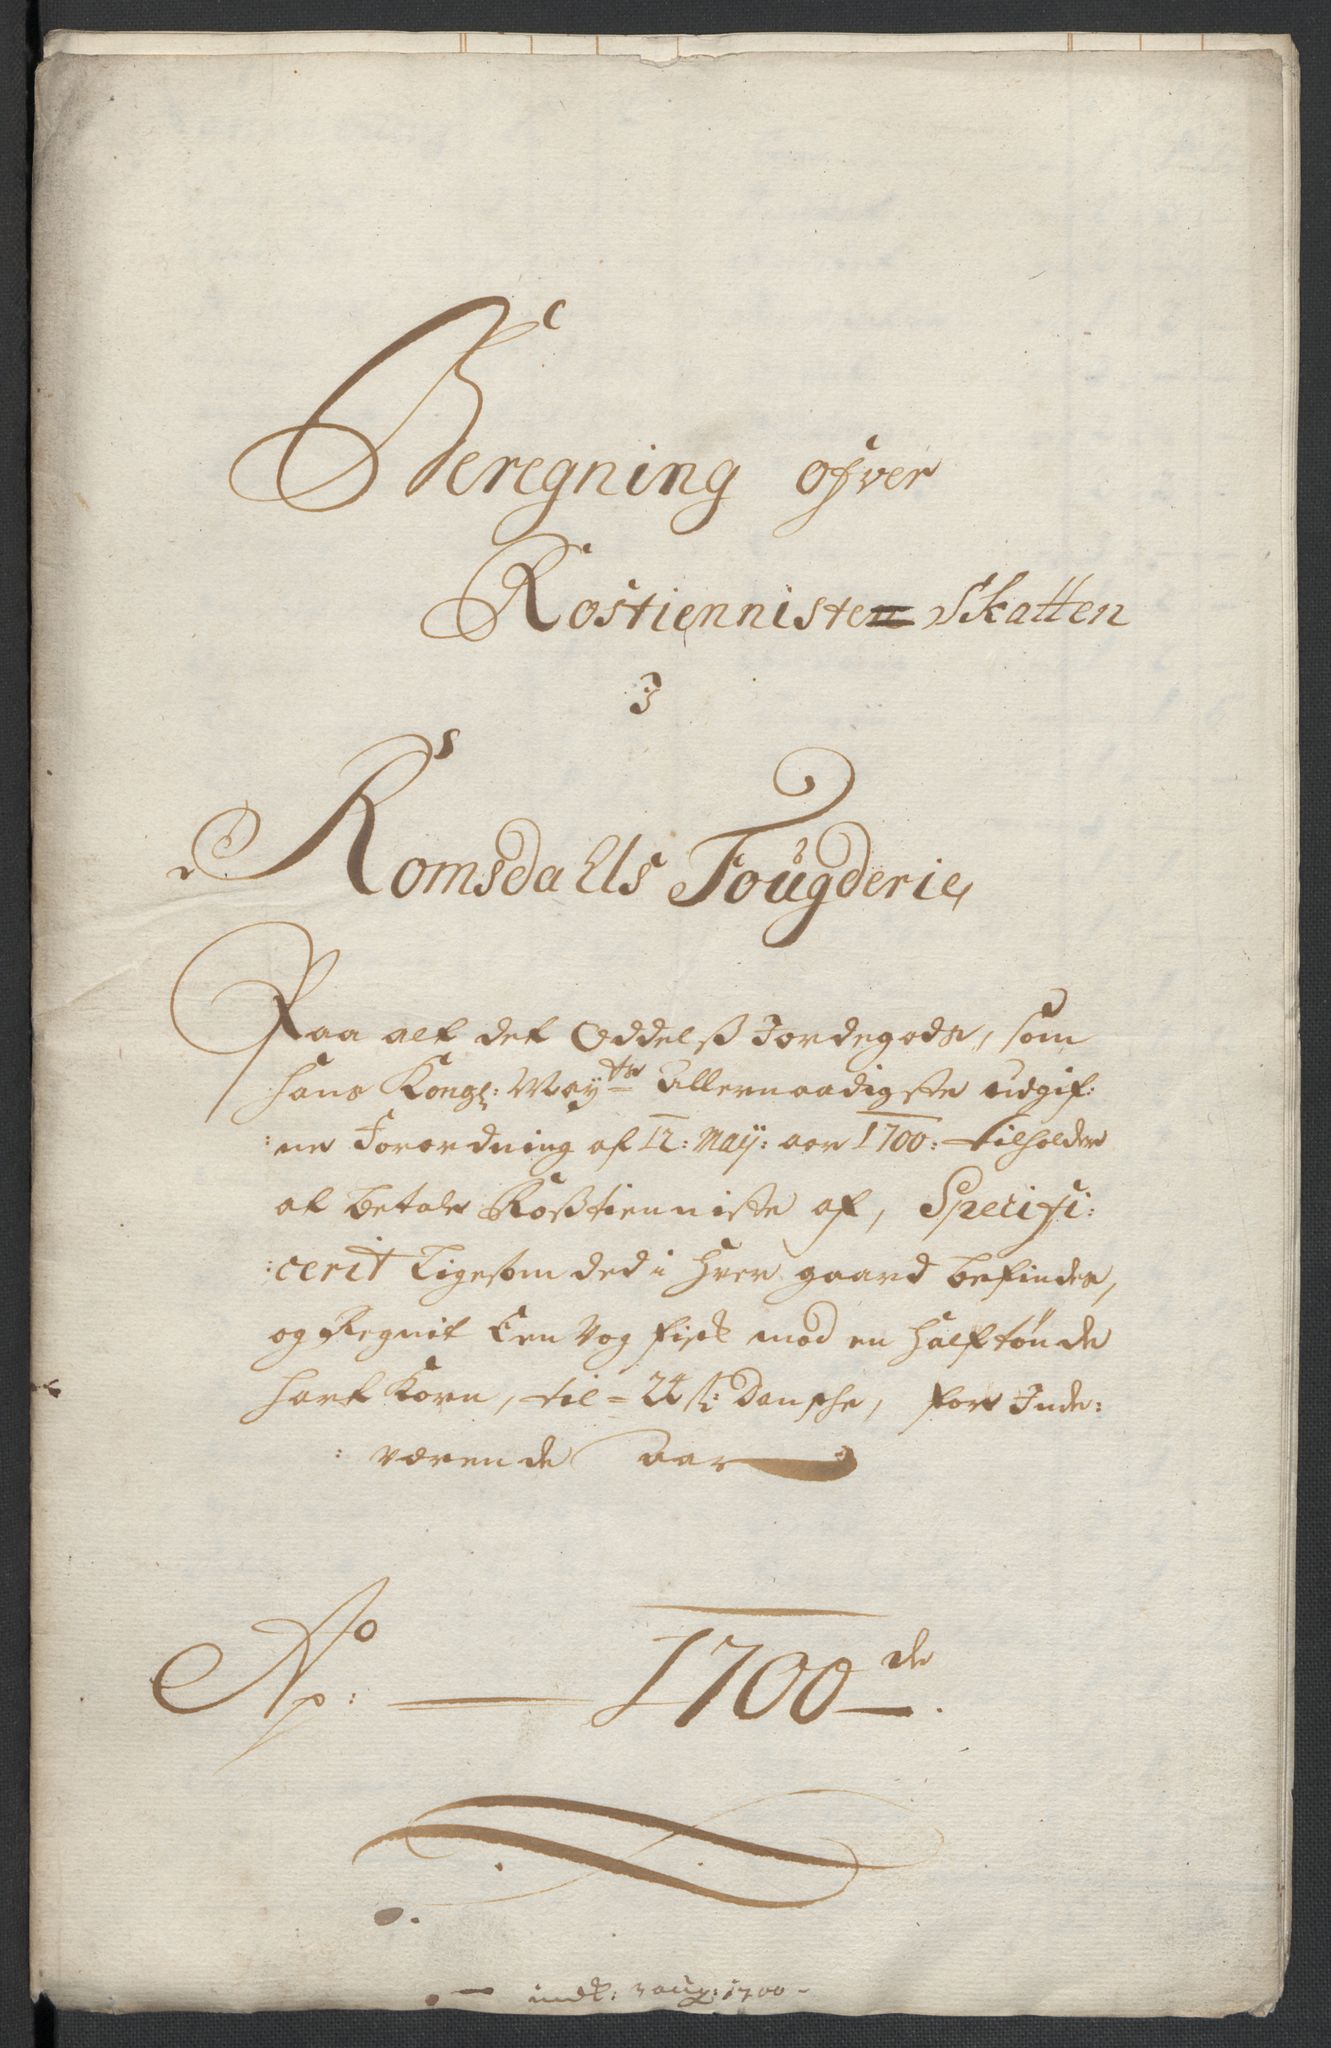 Beregning ofver
Rostiennisten Skatten
I
Romsdalls Fougderie,
Paa alt det Oddelß Jordegods, som
hans Kongl: Mayts Allernaadigste udgif:
:ne Forordning af 12: Maij: aar 1700: tilholder
at betale Roßtienniste af, Specifi:
:cerit Ligesom ded i hver gaard befindes,
og Regnit Een Vog fisk mod en half tønde
hart Korn, til = 24 ß: Danshe, for Inde:
: værende aar
Ao: 1700de.
indl: aug: 1700